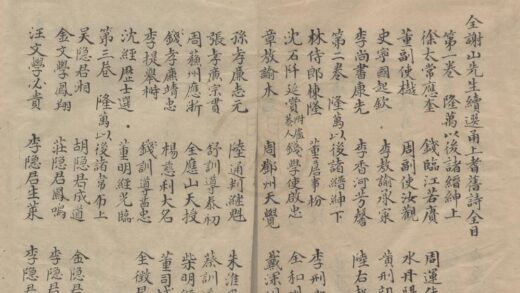 全謝山先生續選甬上耆舊詩全目
第一巻 隆萬以後諸縉紳上
徐太常應奎 錢臨江若賡 周運使
董副使樾 周副使汝觀 水丹陽
史寧國起欽 李教諭承家 黃刑
李尚書康先 李香河芳馨 陸右
第二巻 隆萬以後諸縉紳下
林侍郎棟隆 董主事枌 李刑
沈石阡延賞 錢學使啟忠 全和
章教諭木 周鄧州天覺 戴深州
孫孝廉志元 陸通判繼魁 朱淮
張孝廣宗貫 舒訓導春初 蔡訓
周蘄州應浙 金應山天授 柴明
錢孝廉靖忠 楊意利大名 董司
李提舉 錢訓導茁忠 全徵
沈經歷士選 董明經光臨
第三巻 隆萬以後諸韋布上
吳隱君湘 胡隱君成道 金隱
金文學鳳翔 莊隱君鳳鳴 李隱君
汪文學必貴 李隱君生萊 李隱君